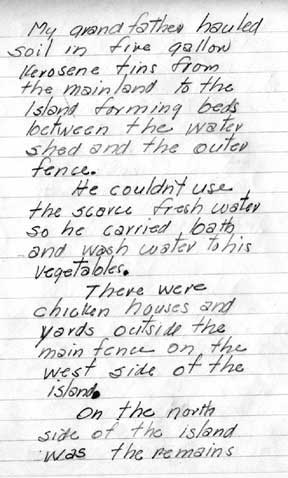 My grandfather hauled
soil in five gallon
kerosene tins from
the mainland to the
Island forming beds
between the water
shed and the outer
fence.
He couldn't use
the scarce fresh water
so he carried bath
and wash water to his
vegetables.
There were
chicken houses and
yards outside the
main fence on the
west side of the
island.
On the north
side of the island
was the remains